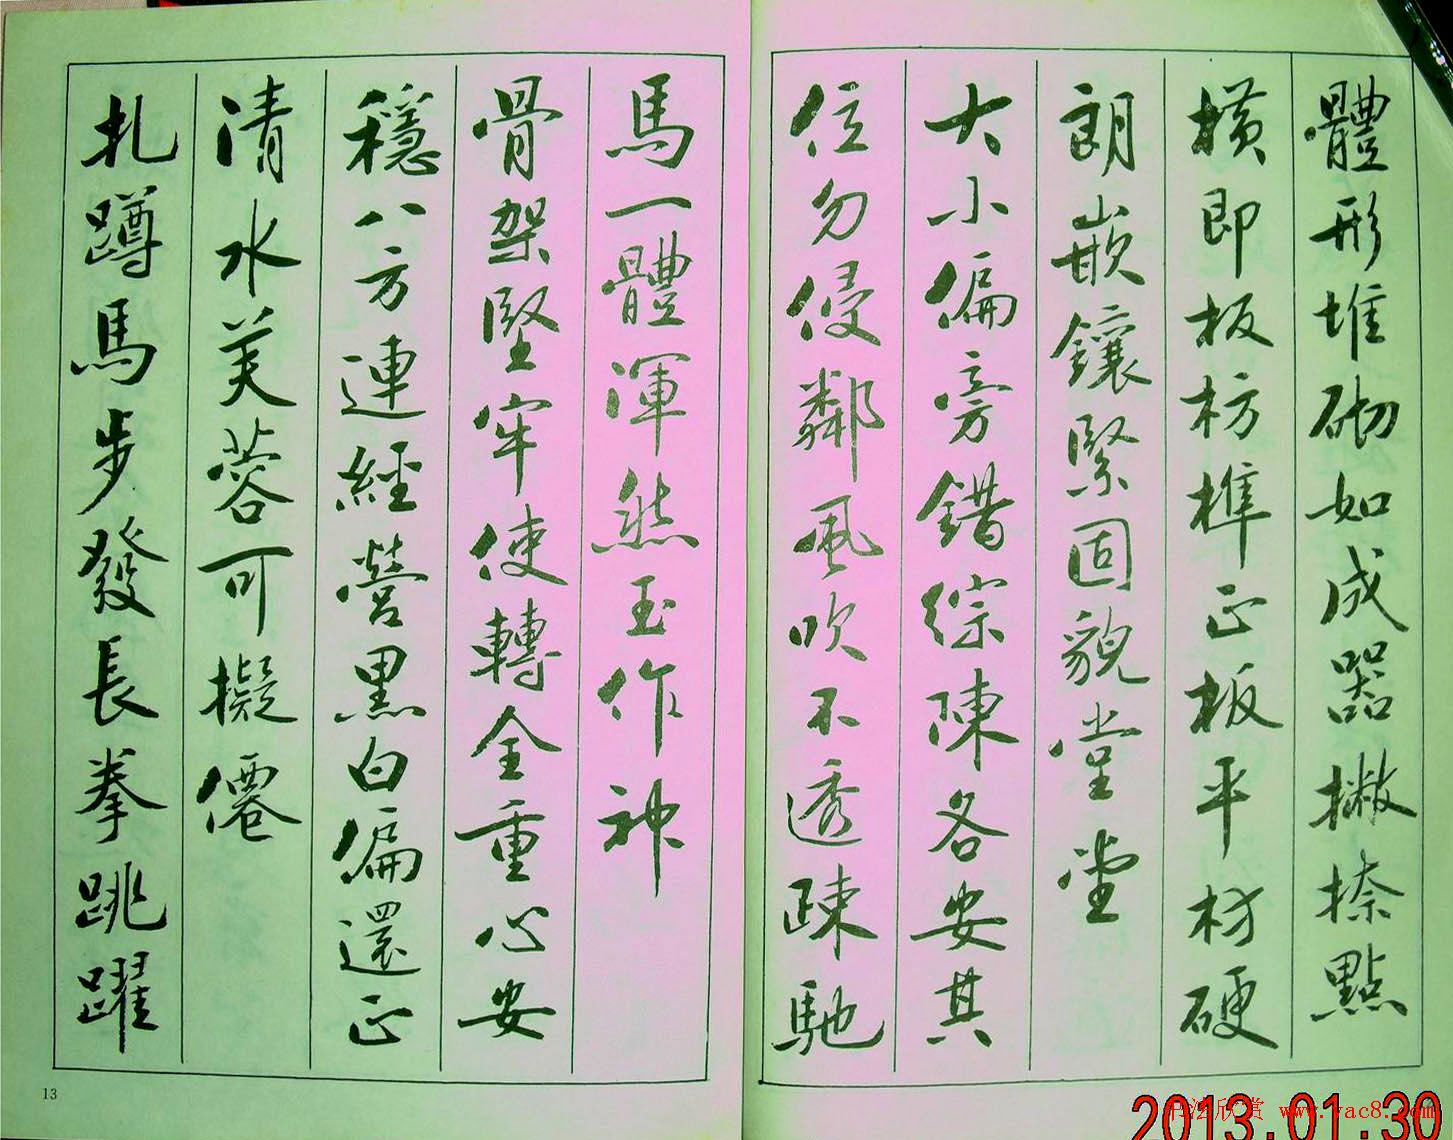 體形堆砌如成器撇捺點
橫即板枋榫正板平材硬
朗嵌鑲緊固貌堂堂
大小偏旁錯綜陳各安其
位勿侵鄰風吹不透疎馳
馬一體渾然玉作神
骨架堅牢使轉全重心安
穩八方連經營黑白偏還正
清水芙蓉可擬僊
扎蹲馬步發長拳跳躍
13
书法欣赏 www.yac8.com
2013.01.30